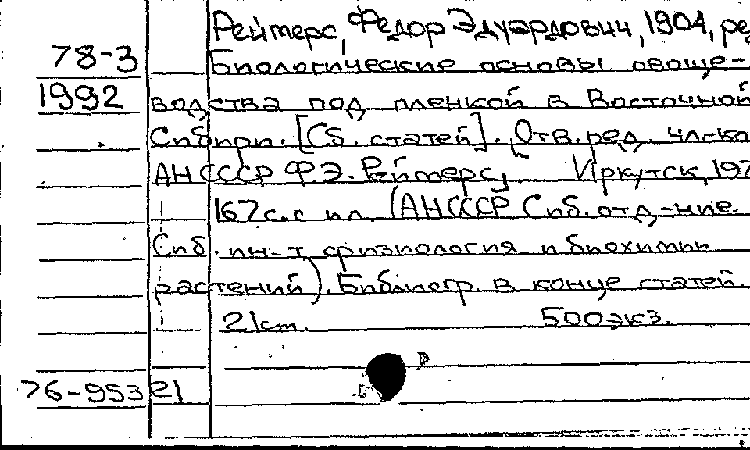 Реймерс, Федор Эдуардович, 1904, ред
78-3 Биологические основы овоще-
1992 водства под пленкой в Восточной
Сибири. [Сб. статей]. Отв. ред. чл-кор
АН СССР Ф.Э. Реймерс, Иркутск, 197
167 с. с ил. (АН СССР Сиб. отд-ние.
Сиб. ин-т физиологии и биохимии
растений). Библиогр. в конце статей.
21 cm. 500 экз.
76-95321